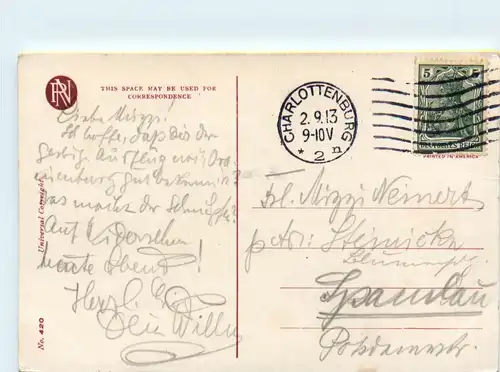 RN
THIS SPACE MAY BE USED FOR
CORRESPONDENCE
Liebe Mizzi!
Ich hoffe, daß Dir der
gestrige Ausflug nach Ora-
nienburg gut bekommen?
Was macht der Schnupfen?
Auf Wiedersehen
heute Abend!
Herzl.
Dein Willy
Universal Copyright
No. 420
CHARLOTTENBURG
2.9.13
9-10V
* 2 n
5 5
DEUTSCHES REICH
PRINTED IN AMERICA
Frl. Mizzi Neinert
Steinicke
Spandau
Potsdamerstr.